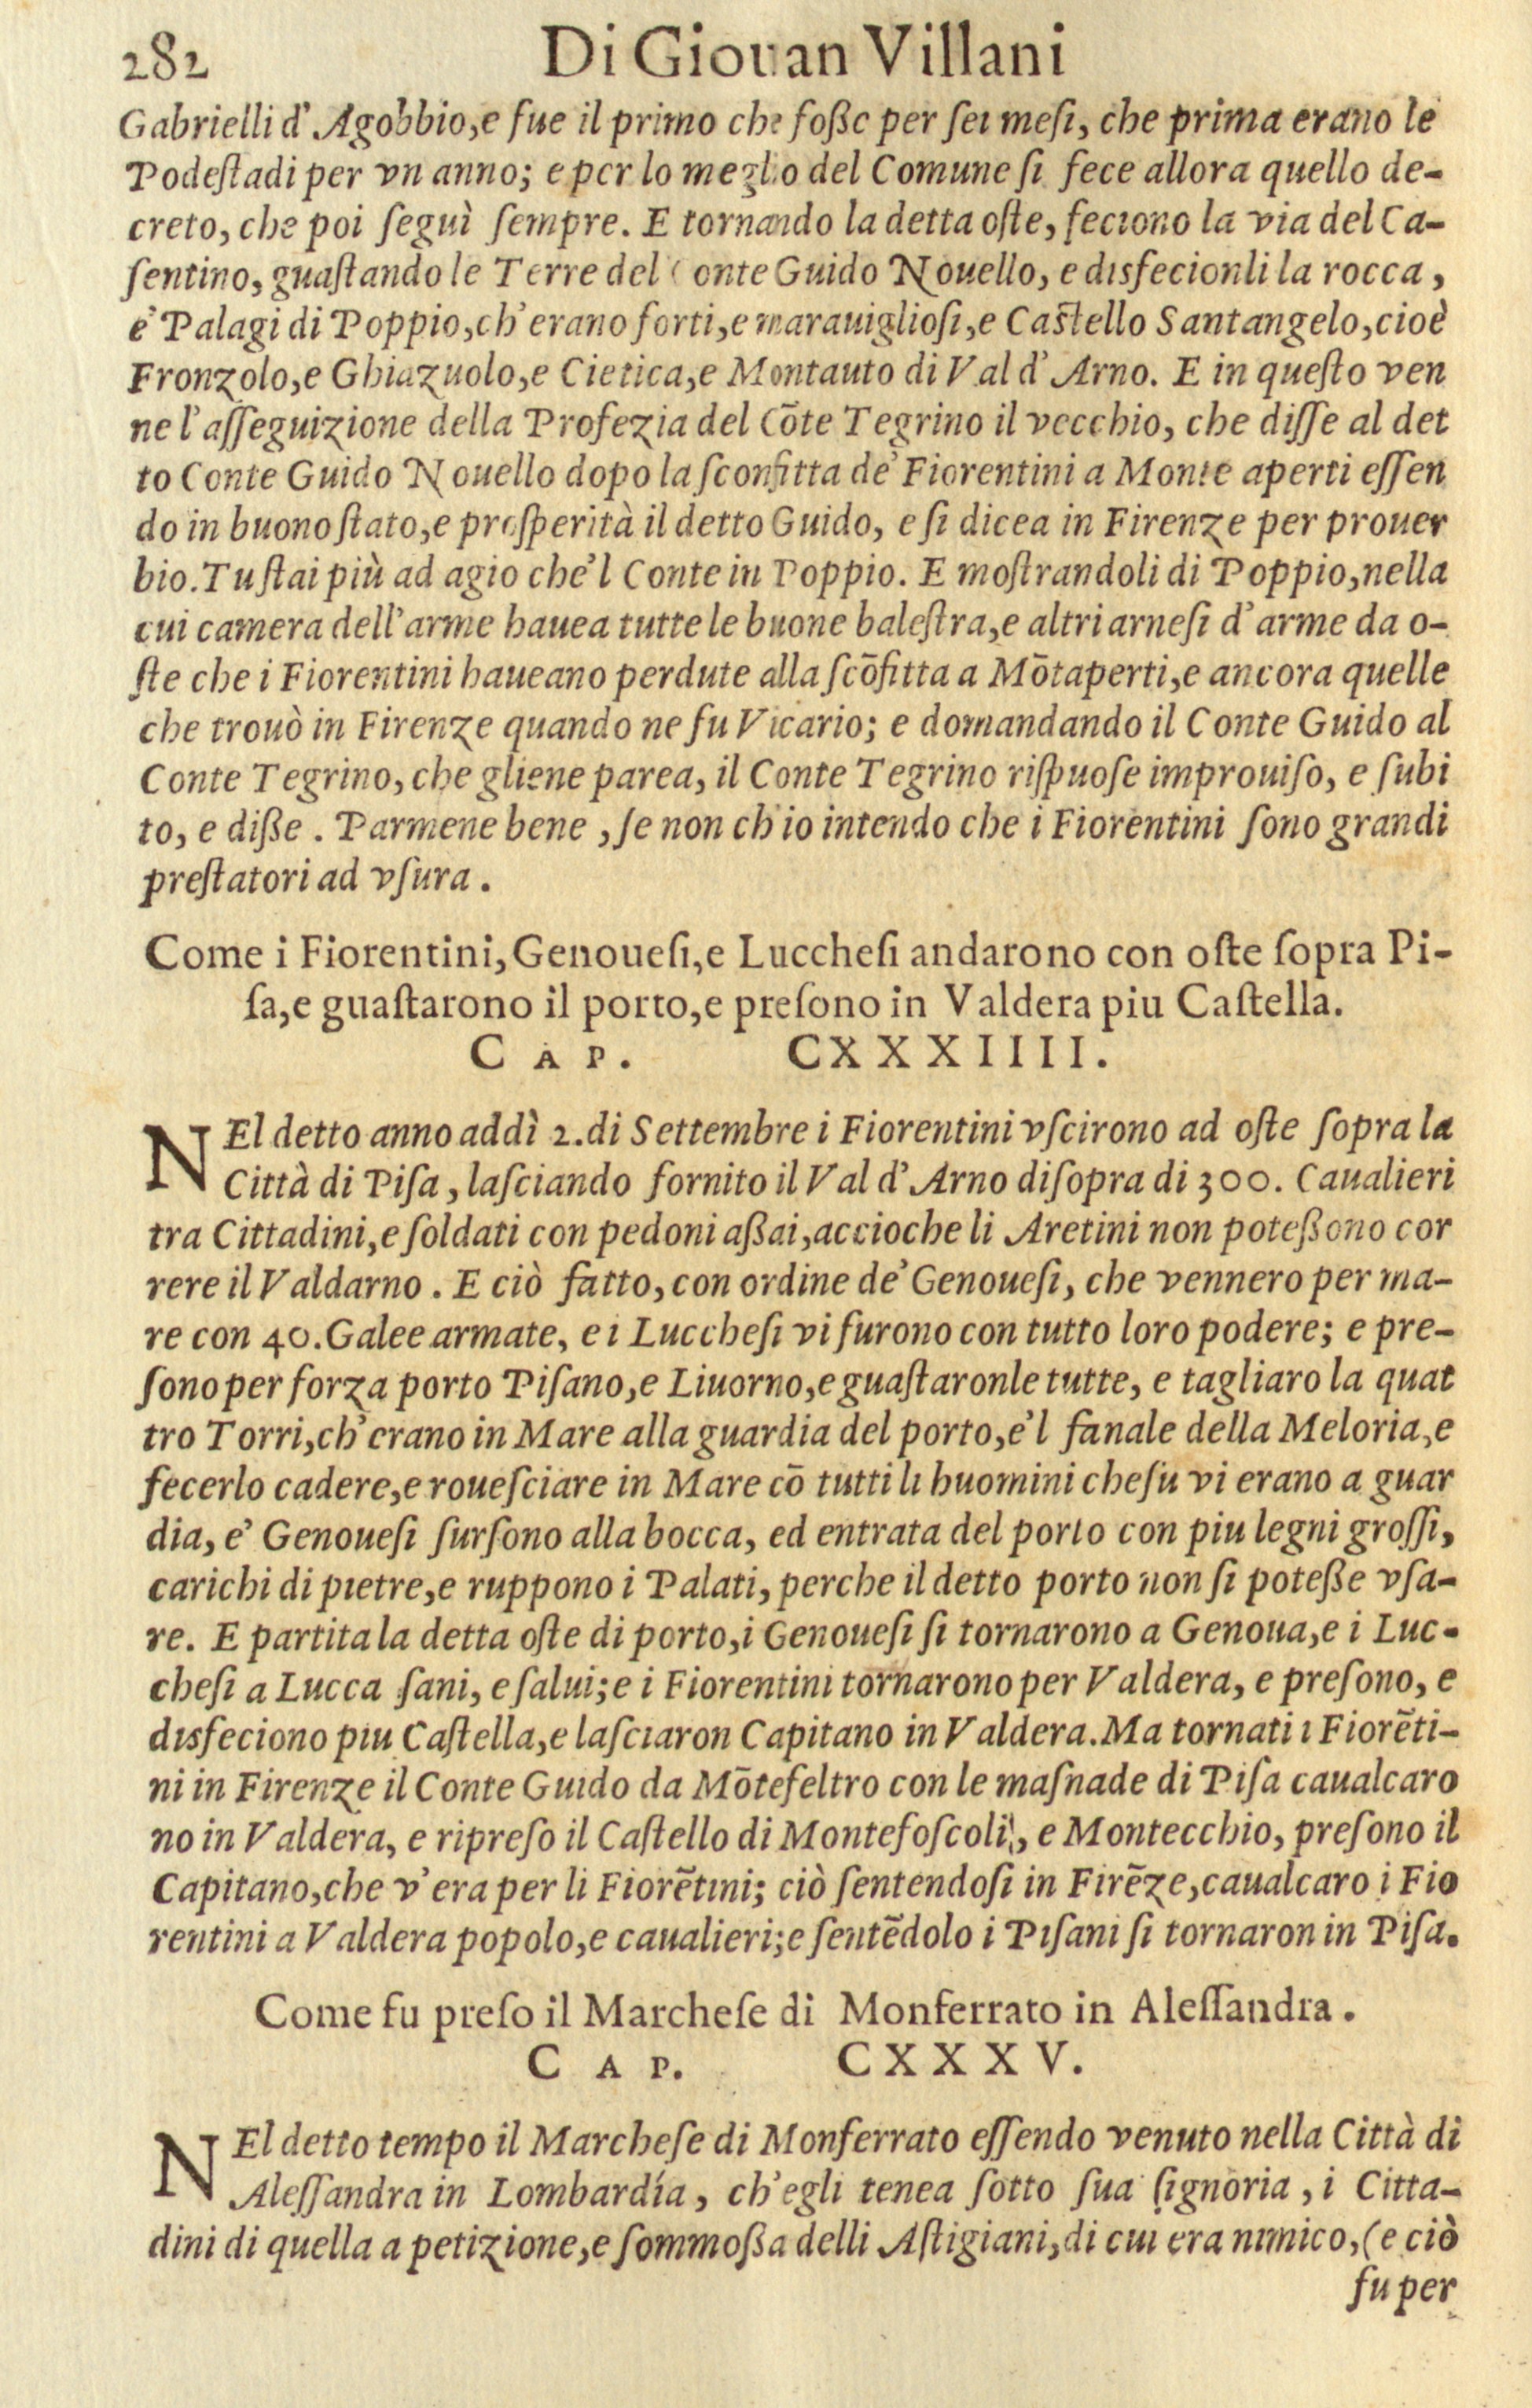 282 Di Giouan Villani
Gabrielli d'Agobbio,e fue il primo che foße per ſei meſi, che prima erano le
Podeſtadi per vn anno; e per lo meglio del Comune ſi fece allora quello de-
creto, che poi ſeguì ſempre. E tornando la detta oſte, feciono la via del Ca-
ſentino, guaſtando le Terre del Conte Guido Nouello, e disfecionli la rocca,
e' Palagi di Poppio,ch'erano forti,e marauiglioſi,e Caſtello Santangelo,cioè
Fronzolo,e Ghiazuolo,e Cietica,e Montauto di Val d'Arno. E in queſto ven
ne l'aſſeguizione della Profezia del Cōte Tegrino il vecchio, che diſſe al det
to Conte Guido Nouello dopo la ſconfitta de' Fiorentini a Monte aperti eſſen
do in buono ſtato,e proſperità il detto Guido, e ſi dicea in Firenze per prouer
bio.Tu ſtai più ad agio che'l Conte in Poppio. E moſtrandoli di Poppio,nella
cui camera dell'arme hauea tutte le buone baleſtra,e altri arneſi d'arme da o-
ſte che i Fiorentini haueano perdute alla ſcōfitta a Mōtaperti,e ancora quelle
che trouò in Firenze quando ne fu Vicario; e domandando il Conte Guido al
Conte Tegrino, che gliene parea, il Conte Tegrino riſpuoſe improuiſo, e ſubi
to, e diße. Parmene bene, ſe non ch'io intendo che i Fiorentini ſono grandi
preſtatori ad vſura.
Come i Fiorentini, Genoueſi,e Luccheſi andarono con oſte ſopra Pi-
ſa,e guaſtarono il porto,e preſono in Valdera piu Caſtella.
CAP. CXXXIIII.
NEl detto anno addì 2.di Settembre i Fiorentini vſcirono ad oſte ſopra la
Città di Piſa, laſciando fornito il Val d'Arno diſopra di 300. Caualieri
tra Cittadini,e ſoldati con pedoni aßai,accioche li Aretini non poteßono cor
rere il Valdarno. E ciò fatto, con ordine de' Genoueſi, che vennero per ma-
re con 40.Galee armate, e i Luccheſi vi furono con tutto loro podere; e pre-
ſono per forza porto Piſano,e Liuorno,e guaſtaronle tutte, e tagliaro la quat
tro Torri,ch'erano in Mare alla guardia del porto,e'l fanale della Meloria,e
fecerlo cadere,e roueſciare in Mare cō tutti li huomini cheſu vi erano a guar
dia, e' Genoueſi ſurſono alla bocca, ed entrata del porto con piu legni groſſi,
carichi di pietre,e ruppono i Palati, perche il detto porto non ſi poteße vſa-
re. E partita la detta oſte di porto,i Genoueſi ſi tornarono a Genoua,e i Luc-
cheſi a Lucca ſani, e ſalui;e i Fiorentini tornarono per Valdera, e preſono, e
disfeciono piu Caſtella,e laſciaron Capitano in Valdera.Ma tornati i Fiorēti-
ni in Firenze il Conte Guido da Mōtefeltro con le maſnade di Piſa caualcaro
no in Valdera, e ripreſo il Caſtello di Montefoſcoli, e Montecchio, preſono il
Capitano,che v'era per li Fiorētini; ciò ſentendoſi in Firēze,caualcaro i Fio
rentini a Valdera popolo,e caualieri;e ſentēdolo i Piſani ſi tornaron in Piſa.
Come fu preſo il Marcheſe di Monferrato in Aleſſandra.
CAP. CXXXV.
NEl detto tempo il Marcheſe di Monferrato eſſendo venuto nella Città di
Aleſſandra in Lombardía, ch'egli tenea ſotto ſua ſignoria, i Citta-
dini di quella a petizione,e ſommoßa delli Aſtigiani,di cui era nimico,(e ciò
fu per